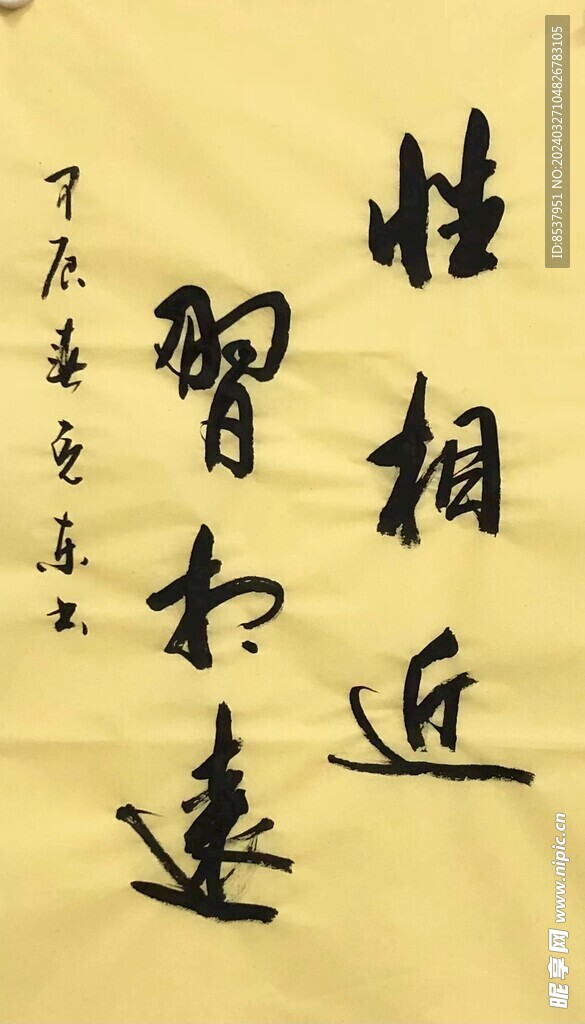 性相近
習相遠
甲辰春克东书
ID:8537951 NO:20240327104826783105
昵享网 www.nipic.cn